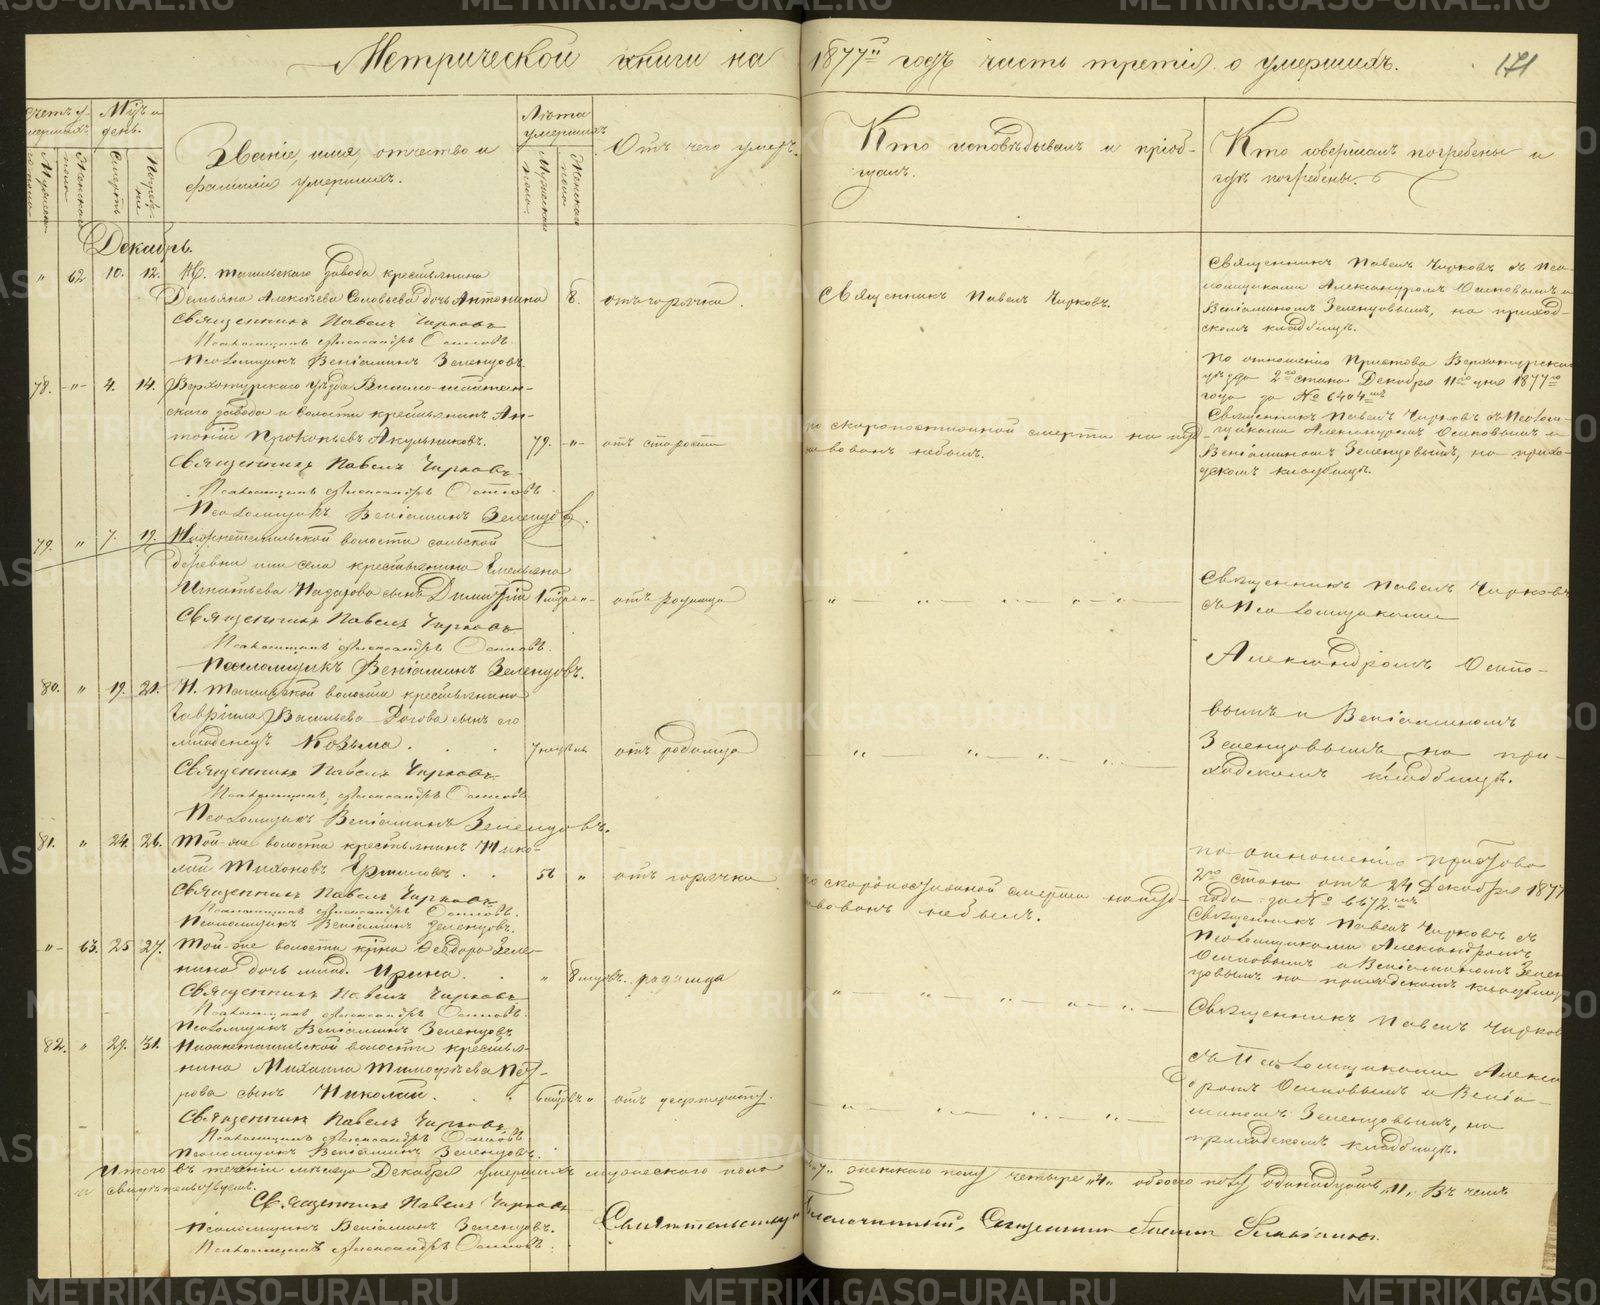 Метрической книги на 1877й годъ часть третія о умершихъ.
171
Счетъ умершихъ
Мужеска пола
Женскаго пола
Мѣс. и день.
Смерть
Погребенія
Званіе, имя, отчество и
фамилія умершихъ.
Лѣта умершихъ
Мужескаго пола
Женскаго пола
Отъ чего умеръ.
Кто исповѣдывалъ и пріоб-
щалъ.
Кто совершалъ погребеніе и
гдѣ погребены.
Декабрь.
" 62 10. 12. Н. тагильскаго завода крестьянина
Демьяна Алексѣева Соловьева дочь Антонина 8. отъ горячки. Священникъ Павелъ Чирковъ.
Священникъ Павелъ Чирковъ
Псаломщикъ Александръ Осиповъ
Псаломщикъ Веніаминъ Зеленцовъ.
Священникъ Павелъ Чирковъ съ Пса-
ломщиками Александромъ Осиповымъ и
Веніаминомъ Зеленцовымъ, на приход-
скомъ кладбищѣ.
78. -"- 4. 14. Верхотурскаго уѣзда Висимо-шайтан-
скаго завода и волости крестьянинъ Ан-
тоній Прокопьевъ Акульниковъ. 79. -"- отъ старости
по скоропостижной смерти на пуд-
ствованъ небылъ.
Священникъ Павелъ Чирковъ
Псаломщикъ Александръ Осиповъ.
Псаломщикъ Веніаминъ Зеленцовъ.
По отношенію Пристава Верхотурскаго
уѣзда 2го стана Декабря 11го дня 1877го
года за № 6404мъ
Священникъ Павелъ Чирковъ съ Псалом-
щиками Александромъ Осиповымъ и
Веніаминомъ Зеленцовымъ, на прихо-
дскомъ кладбищѣ.
79. " 7. 19. Нижнетагильской волости
деревни или села крестьянина Емельяна
Игнатьева Назарова сынъ Димитрій отъ родимца
Священникъ Павелъ Чирковъ
Псаломщикъ Александръ Осиповъ.
Псаломщикъ Веніаминъ Зеленцовъ.
Священникъ Павелъ Чирковъ
съ Псаломщиками
Александромъ Осипо-
вымъ и Веніаминомъ
Зеленцовымъ на при-
ходскомъ кладбищѣ.
80. " 19. 21. Н. тагильской волости крестьянина
Гавріила Васильева Рогова сынъ его
младенецъ Козьма. 7 недѣль отъ родимца
Священникъ Павелъ Чирковъ
Псаломщикъ Александръ Осиповъ
Псаломщикъ Веніаминъ Зеленцовъ.
81. " 24. 26. Той-же волости крестьянинъ Нико-
лай Тихоновъ Ершовъ 56 " отъ горячки
по скоропостижной смерти напуд-
ствованъ небылъ.
Священникъ Павелъ Чирковъ
Псаломщикъ Александръ Осиповъ.
Псаломщикъ Веніаминъ Зеленцовъ.
по отношенію пристава
2го стана отъ 24 Декабря 1877
года за № 6672мъ
Священникъ Павелъ Чирковъ съ
Псаломщиками Александромъ
Осиповымъ и Веніаминомъ Зелен-
цовымъ на приходскомъ кладбищѣ
-"- 63. 25 27. Той-же волости крна Ѳеодора Зеле-
нина дочь млад. Ирина. " 8 родимца
Священникъ Павелъ Чирковъ
Псаломщикъ Александръ Осиповъ.
Псаломщикъ Веніаминъ Зеленцовъ
Священникъ Павелъ Чирковъ
съ Псаломщиками Алекса
дромъ Осиповымъ и Веніа-
миномъ Зеленцовымъ, на
приходскомъ кладбищѣ.
82. " 29. 31. Нижнетагильской волости крестья-
нина Михаила Тимофѣева Пет-
рова сынъ Николай.
Священникъ Павелъ Чирковъ
Псаломщикъ Александръ Осиповъ
Псаломщикъ Веніаминъ Зеленцовъ.
Итого въ теченіи мѣсяца Декабря умершихъ мужескаго пола „7„ женскаго полу четыре „4„ обоего полу одинадцать „11„ Въ чемъ
и свидѣтельствуемъ.
Священникъ Павелъ Чирковъ
Псаломщикъ Веніаминъ Зеленцовъ.
Псаломщикъ Александръ Осиповъ.
Свидѣтельствовалъ Благочинный, Священникъ
METRIKI.GASO-URAL.RU